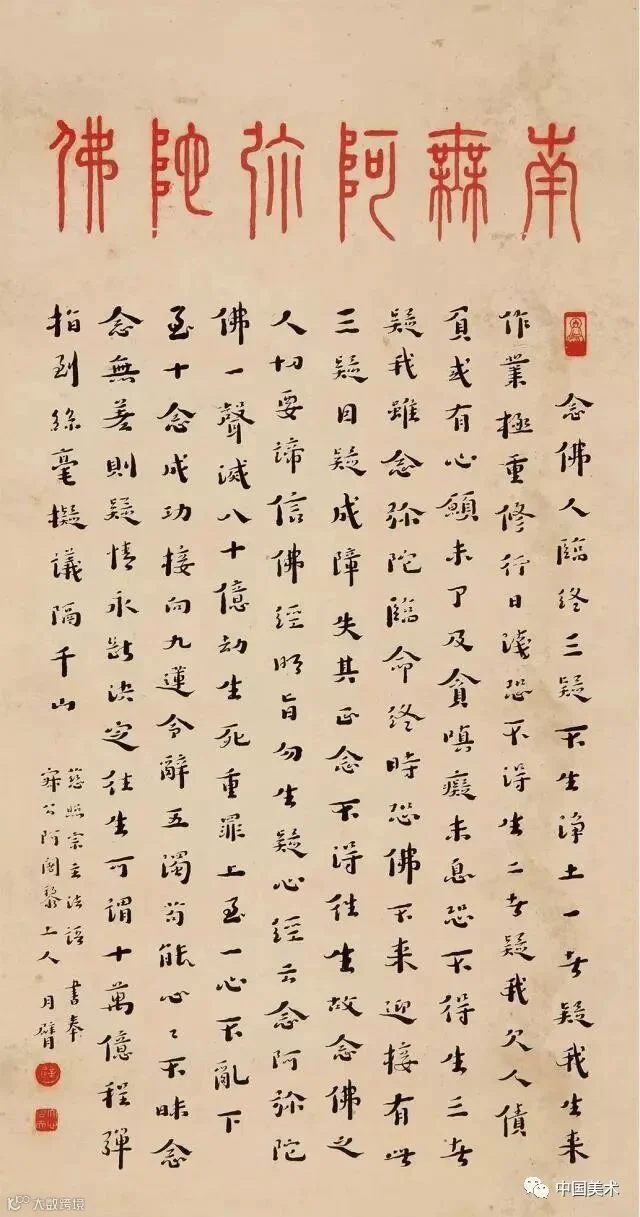 南無阿弥陀佛
念佛人臨終三疑不生淨土一者疑我生来
作業極重修行日淺恐不得生二者疑我欠人債
負或有心願未了及貪嗔癡未息恐不得生三者
疑我雖念弥陀臨命終時恐佛不来迎接有此
三疑因疑成障失其正念不得往生故念佛之
人切要諦信佛經明旨勿生疑心經云念阿弥陀
佛一聲滅八十億劫生死重罪上至一心不亂下
至十念成功接向九蓮令辭五濁苟能心〻不昧念
念無差則疑情永斷決定往生可謂十萬億程彈
指到絲毫擬議隔千山
慈照宗主法語 書奉
寂公阿闍黎上人 月臂
中国美术
大数跨境